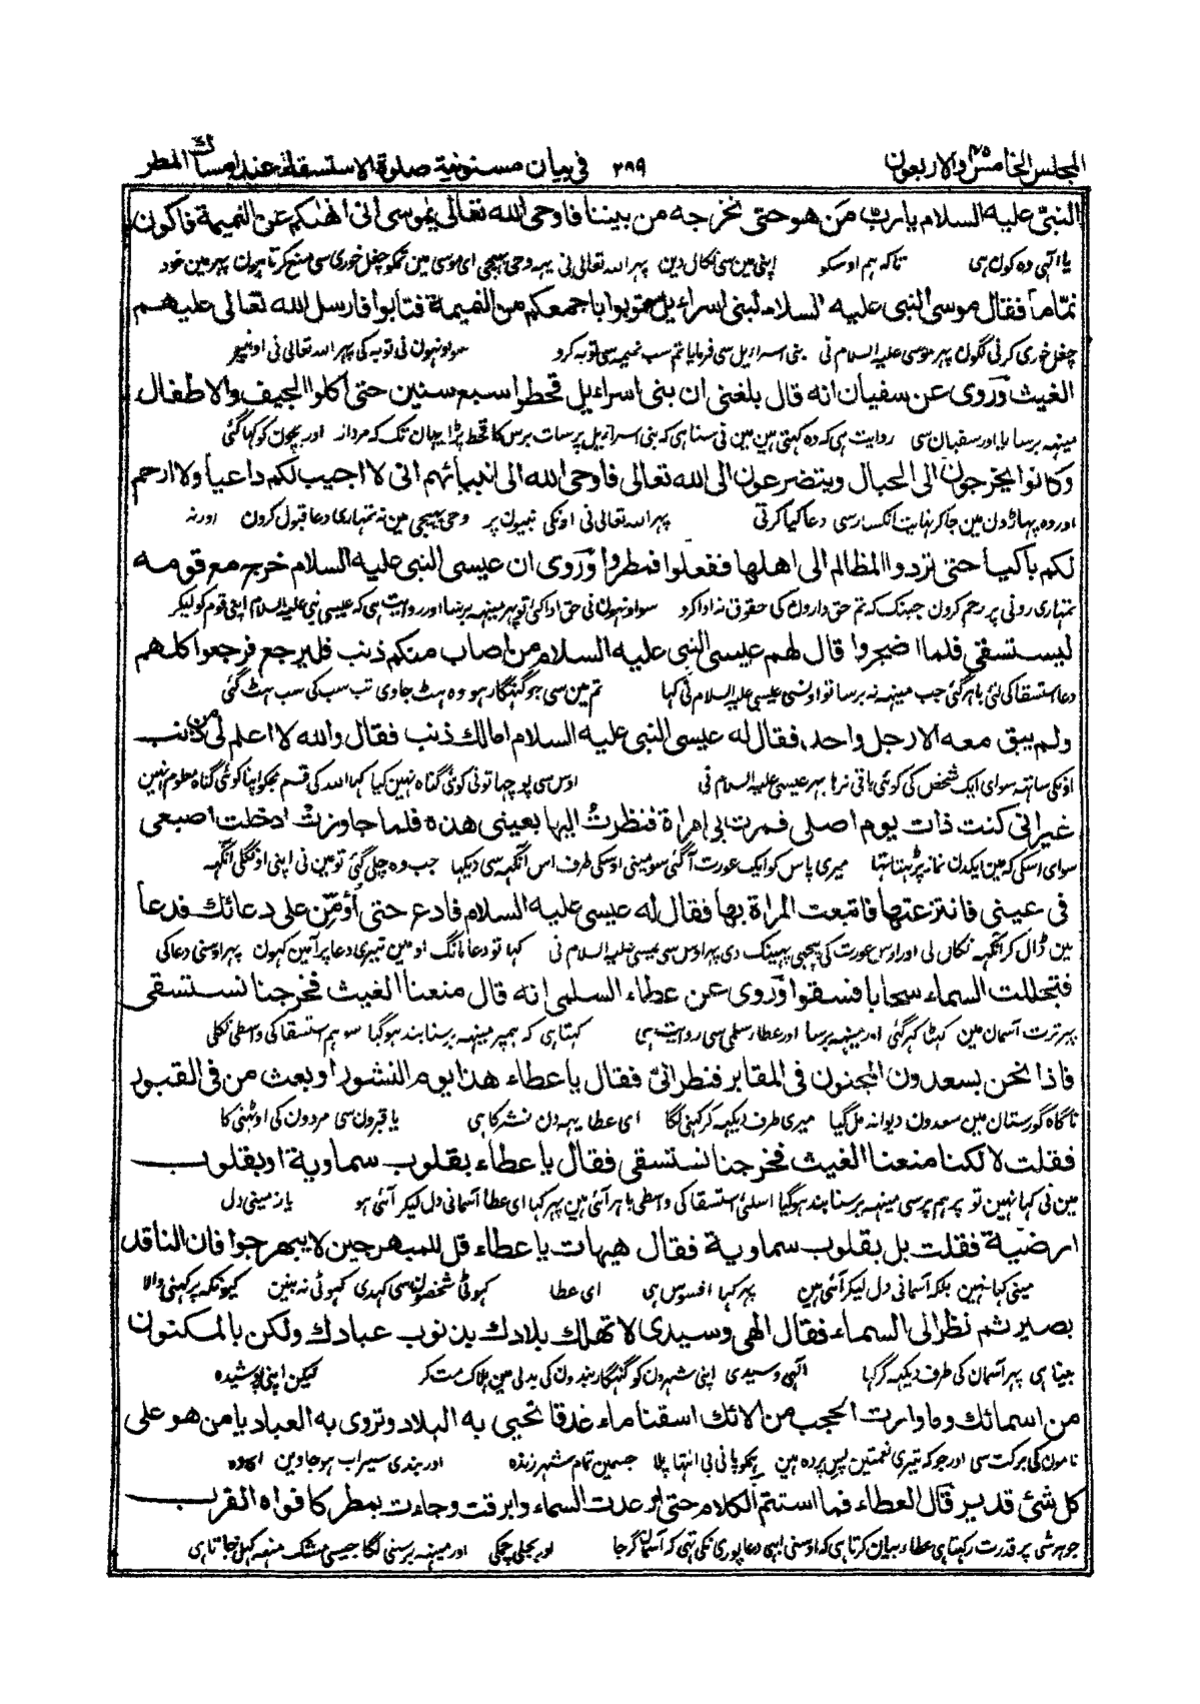 المجلس الخامس والاربعون ٢٨٩ فى بيان مسنونية صلوة الاستسقاء عند امساك المطر
النبى عليه السلام يا رب من هو حتى نخرجه من بيننا فاوحى الله تعالى يموسى انى انهكم عن النميمة فاكون
یا الٰہی وہ کون ہی تاکہ ہم اوسکو اپنی مین سی نکال دین پہر اللہ تعالی نی یہہ وحی بہیجی ای موسی مین تمکو چغل خوری سی منع کرتا ہون پہر مین خود
نماما فقال موسى النبى عليه السلام لبنى اسراءيل توبوا باجمعكم من النميمة فتابوا فارسل الله تعالى عليهم
چغل خوری کرنی لگون پہر موسی علیہ السلام نی بنی اسرائیل سی فرمایا تم سب نمیمہ سی توبہ کرو سو اونہون نی توبہ کی پہر اللہ تعالی نی اونپر
الغيث وروى عن سفيان انه قال بلغنى ان بنى اسراءيل قحطوا سبع سنين حتى اكلوا الجيف والاطفال
مینہہ برسایا اور سفیان سی روایت ہی کہ وہ کہتی ہین مین نی سنا ہی کہ بنی اسرائیل پر سات برس کا قحط پڑا یہان تک کہ مردار اور بچون کو کہا گئی
وكانوا يخرجون الى الجبال ويتضرعون الى الله تعالى فاوحى الله الى انبيائهم انى لا اجيب لكم داعيا ولا ارحم
اور وہ پہاڑون مین جا کر نہایت انکسار سی دعا کیا کرتی پہر اللہ تعالی نی اونکی نبیون پر وحی بہیجی مین نہ تمہاری دعا قبول کرون اور نہ
لكم باكيا حتى تردوا المظالم الى اهلها ففعلوا فمطروا وروى ان عيسى النبى عليه السلام خرج مع قومه
تمہاری رونی پر رحم کرون جبتک کہ تم حق دارون کی حقوق نہ ادا کرو سو اونہون نی حق ادا کئی تو پہر مینہہ برسا اور روایت ہی کہ عیسی نبی علیہ السلام اپنی قوم کو لیکر
ليستسقى فلما اضجروا قال لهم عيسى النبى عليه السلام من اصاب منكم ذنب فليرجع فرجعوا كلهم
دعا استسقا کی لئی باہر گئی جب مینہہ نہ برسا تو اونسی عیسی علیہ السلام نی کہا تم مین سی جو گنہگار ہو وہ ہٹ جاوی تب سب کی سب ہٹ گئی
ولم يبق معه الا رجل واحد فقال له عيسى النبى عليه السلام امالك ذنب فقال والله لا اعلم لى من ذنب
اونکی ساتہہ سوای ایک شخص کی کوئی باقی نرہا پہر عیسی علیہ السلام نی اوس سی پوچہا تو نی کوئی گناہ نہین کیا کہا اللہ کی قسم مجکو اپنا کوئی گناہ معلوم نہین
غير انى كنت ذات يوم اصلى فمرت بى امراة فنظرت اليها بعينى هذه فلما جاوزت ادخلت اصبعى
سوای اسکی کہ مین ایکدن نماز پڑہتا تہا میری پاس کو ایک عورت آ گئی سو مینی اوسکی طرف اس آنکہہ سی دیکہا جب وہ چلی گئی تو مین نی اپنی اونگلی آنکہہ
فى عينى فانتزعتها فاتبعت المراة بها فقال له عيسى عليه السلام فادع حتى أؤمن على دعائك فدعا
مین ڈال کر آنکہہ نکال لی اور اوس عورت کی پیچہی پہینک دی پہر اوس سی عیسی علیہ السلام نی کہا تو دعا مانگ اور مین تیری دعا پر آمین کہون پہر اوسنی دعا کی
فتجللت السماء سحابا فسقوا وروى عن عطاء السلمى انه قال منعنا الغيث فخرجنا نستسقى
پہر ترت آسمان مین گہٹا گہر گئی اور مینہہ برسا اور عطاء سلمی سی روایت ہی کہتا ہی کہ ہمپر مینہہ برسنا بند ہو گیا سو ہم استسقا کی واسطی نکلی
فاذا نحن بسعدون المجنون فى المقابر فنظر الى فقال يا عطاء هذا يوم النشور او بعث من فى القبور
ناگاہ گورستان مین سعدون دیوانہ مل گیا میری طرف دیکہہ کر کہنی لگا ای عطا یہہ دن نشر کا ہی یا قبرون سی مردون کی اوٹہنی کا
فقلت لا لكنا منعنا الغيث فخرجنا نستسقى فقال يا عطاء بقلوب سماوية او بقلوب
مین نی کہا نہین تو پر ہم پر سی مینہہ برسنا بند ہو گیا اسلئی استسقا کی واسطی باہر آئی ہین پہر کہا ای عطا آسمانی دل لیکر آئی ہو یا زمینی دل
ارضية فقلت بل بقلوب سماوية فقال هيهات يا عطاء قل للمبهرجين لا يبهرجوا فان الناقد
مینی کہا نہین بلکہ آسمانی دل لیکر آئی ہین پہر کہا افسوس ہی ای عطا کہوٹی شخصون سی کہدی کہوٹی نہ بنین کیونکہ پرکہنی والا
بصير ثم نظر الى السماء فقال الهى وسيدى لا تهلك بلادك بذنوب عبادك ولكن بالمكنون
بینا ہی پہر آسمان کی طرف دیکہہ کر کہا الٰہی وسیدی اپنی شہرون کو گنہگار بندون کی بدلی مین ہلاک مت کر لیکن اپنی پوشیدہ
من اسمائك وما وارت الحجب من الائك اسقنا ماء غدقا تحيى به البلاد وتروى به العباد يا من هو على
نامون کی برکت سی اور جو کہ تیری نعمتین پس پردہ ہین ہمکو پانی بی انتہا پلا جسمین تمام شہر زندہ اور بندی سیراب ہو جاوین ای وہ
كل شئ قدير قال العطاء فما استتم الكلام حتى ارعدت السماء وابرقت وجاءت بمطر كافواه القرب
جو ہر شی پر قدرت رکہتا ہی عطاء بیان کرتا ہی کہ اوسنی ابہی دعا پوری نکی تہی کہ آسمان گرجا اور بجلی چمکی اور مینہہ برسنی لگا جیسی مشک کا منہہ کہل جاتا ہی